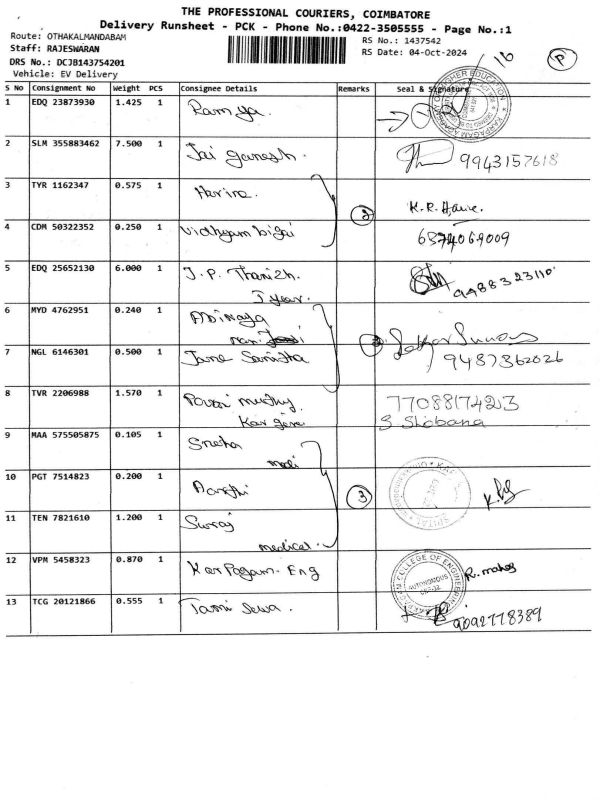 THE PROFESSIONAL COURIERS, COIMBATORE
Delivery Runsheet - PCK - Phone No.:0422-3505555 - Page No.:1
Route: OTHAKALMANDABAM
RS No.: 1437542
Staff: RAJESWARAN
RS Date: 04-Oct-2024
DRS No.: DCJB143754201
Vehicle: EV Delivery
16
P
S No Consignment No Weight PCS Consignee Details Remarks Seal & Signature
1 EDQ 23873930 1.425 1 Ramya.
2 SLM 355883462 7.500 1 Jai Ganesh. 9943157618
3 TYR 1162347 0.575 1 Harine. K.R. Harine.
2
4 CDM 50322352 0.250 1 6374069009
5 EDQ 25652130 6.000 1 J.P. 9488323110
I year.
6 MYD 4762951 0.240 1 Abinaya
7 NGL 6146301 0.500 1 Jane 9487362026
8 TVR 2206988 1.570 1 7708817423
S Shobana
9 MAA 575505875 0.105 1 Sneha
medi
10 PGT 7514823 0.200 1 Aarthi 3
11 TEN 7821610 1.200 1 Suraj
medical.
12 VPM 5458323 0.870 1 Karpagam. Eng
COLLEGE OF ENGINEERING
AUTONOMOUS
13 TCG 20121866 0.555 1 Tami Selva. 9092778389